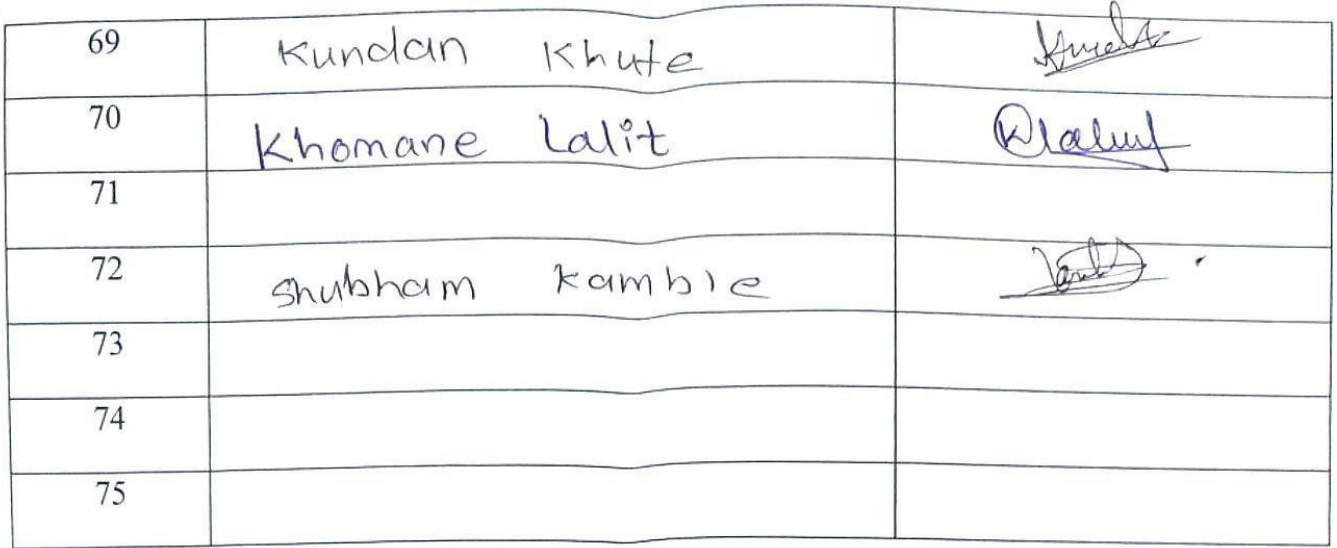 69 Kundan Khute
70 Khomane Lalit
71
72 Shubham Kamble
73
74
75